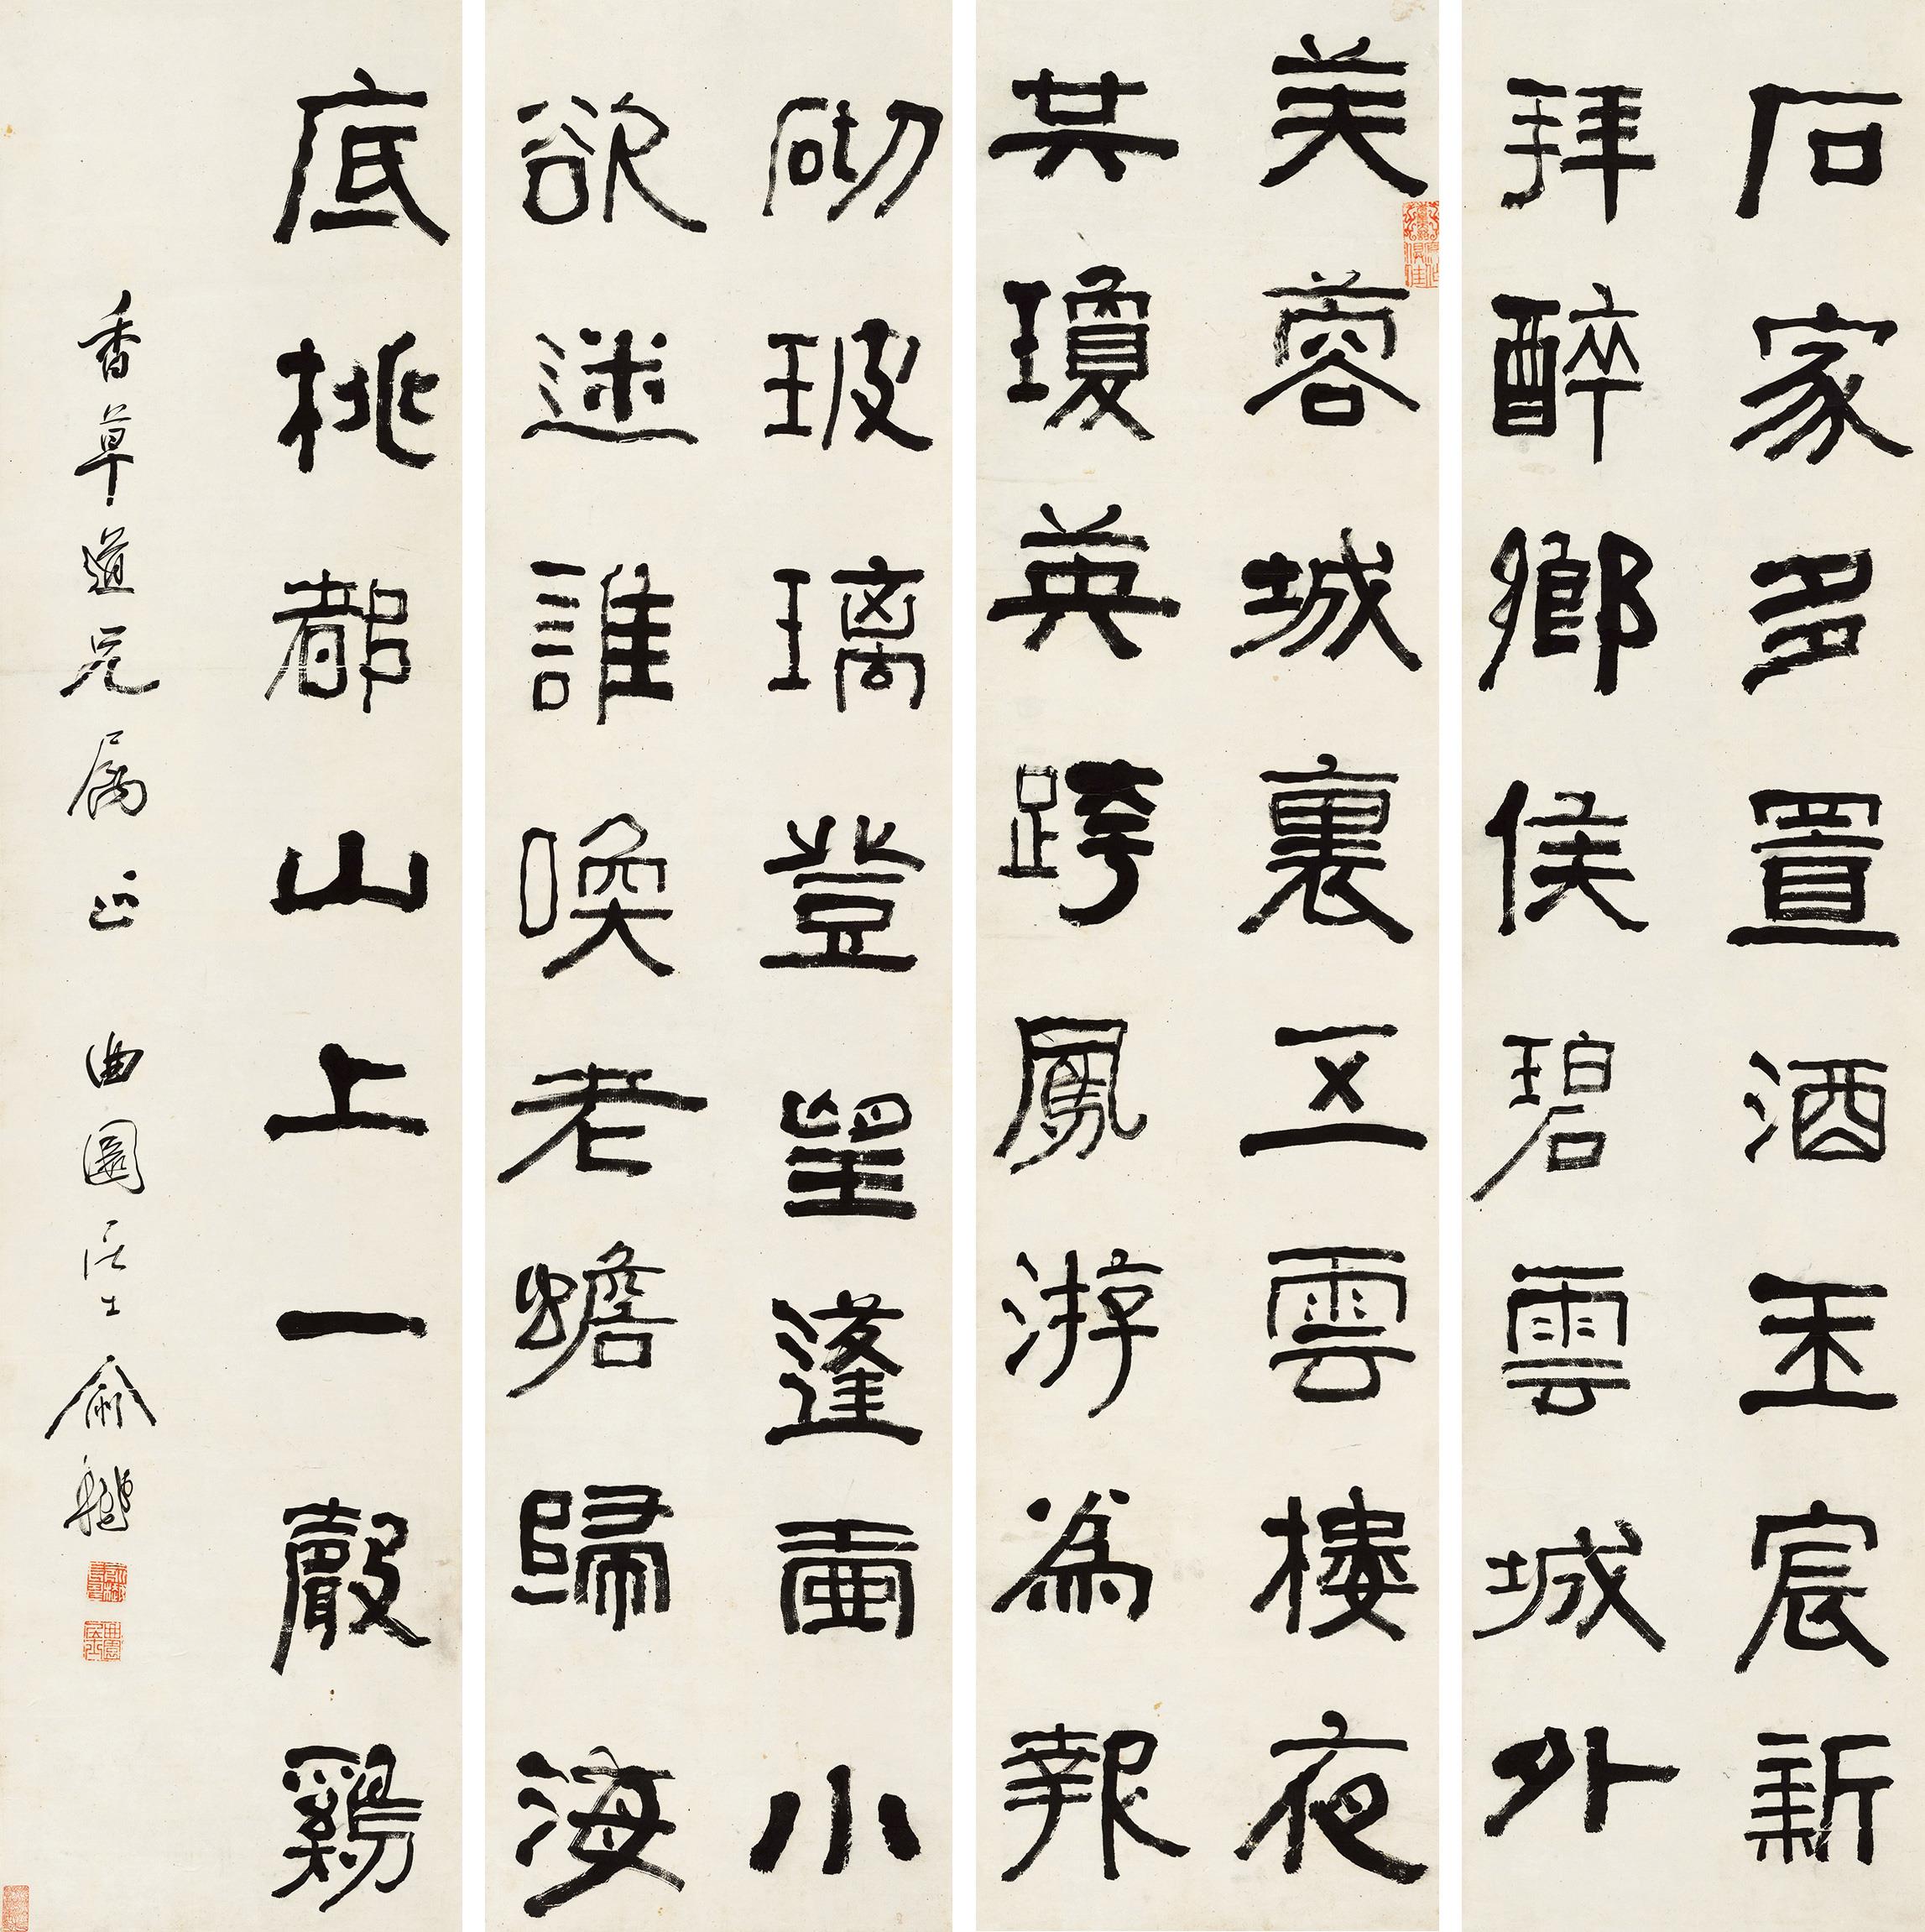 石家多置酒玉宸新
拜醉鄉侯碧雲城外
芙蓉城裏五雲樓夜
共瓊英跨鳳游為報
砌玻璃登望蓬壺小
欲迷誰喚老蟾歸海
底桃都山上一聲鷄
香草道兄屬正 曲園居士俞樾